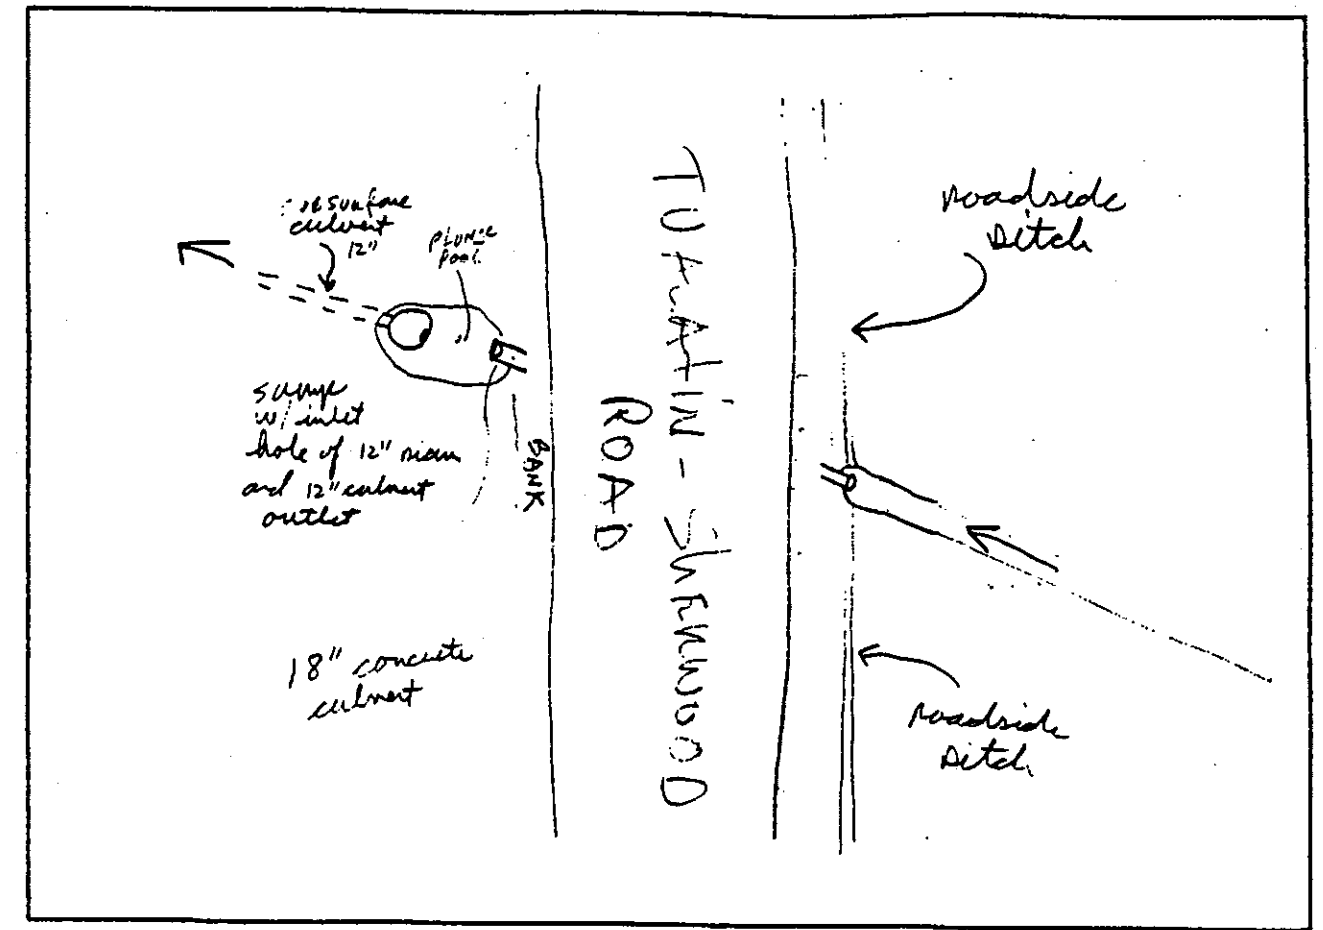 culvert
12"
PLUNGE
POOL
w/ inlet
hole of 12" diam
and 12" culvert
outlet
18" concrete
culvert
BANK
TUALATIN - SHERWOOD
ROAD
roadside
ditch
roadside
ditch